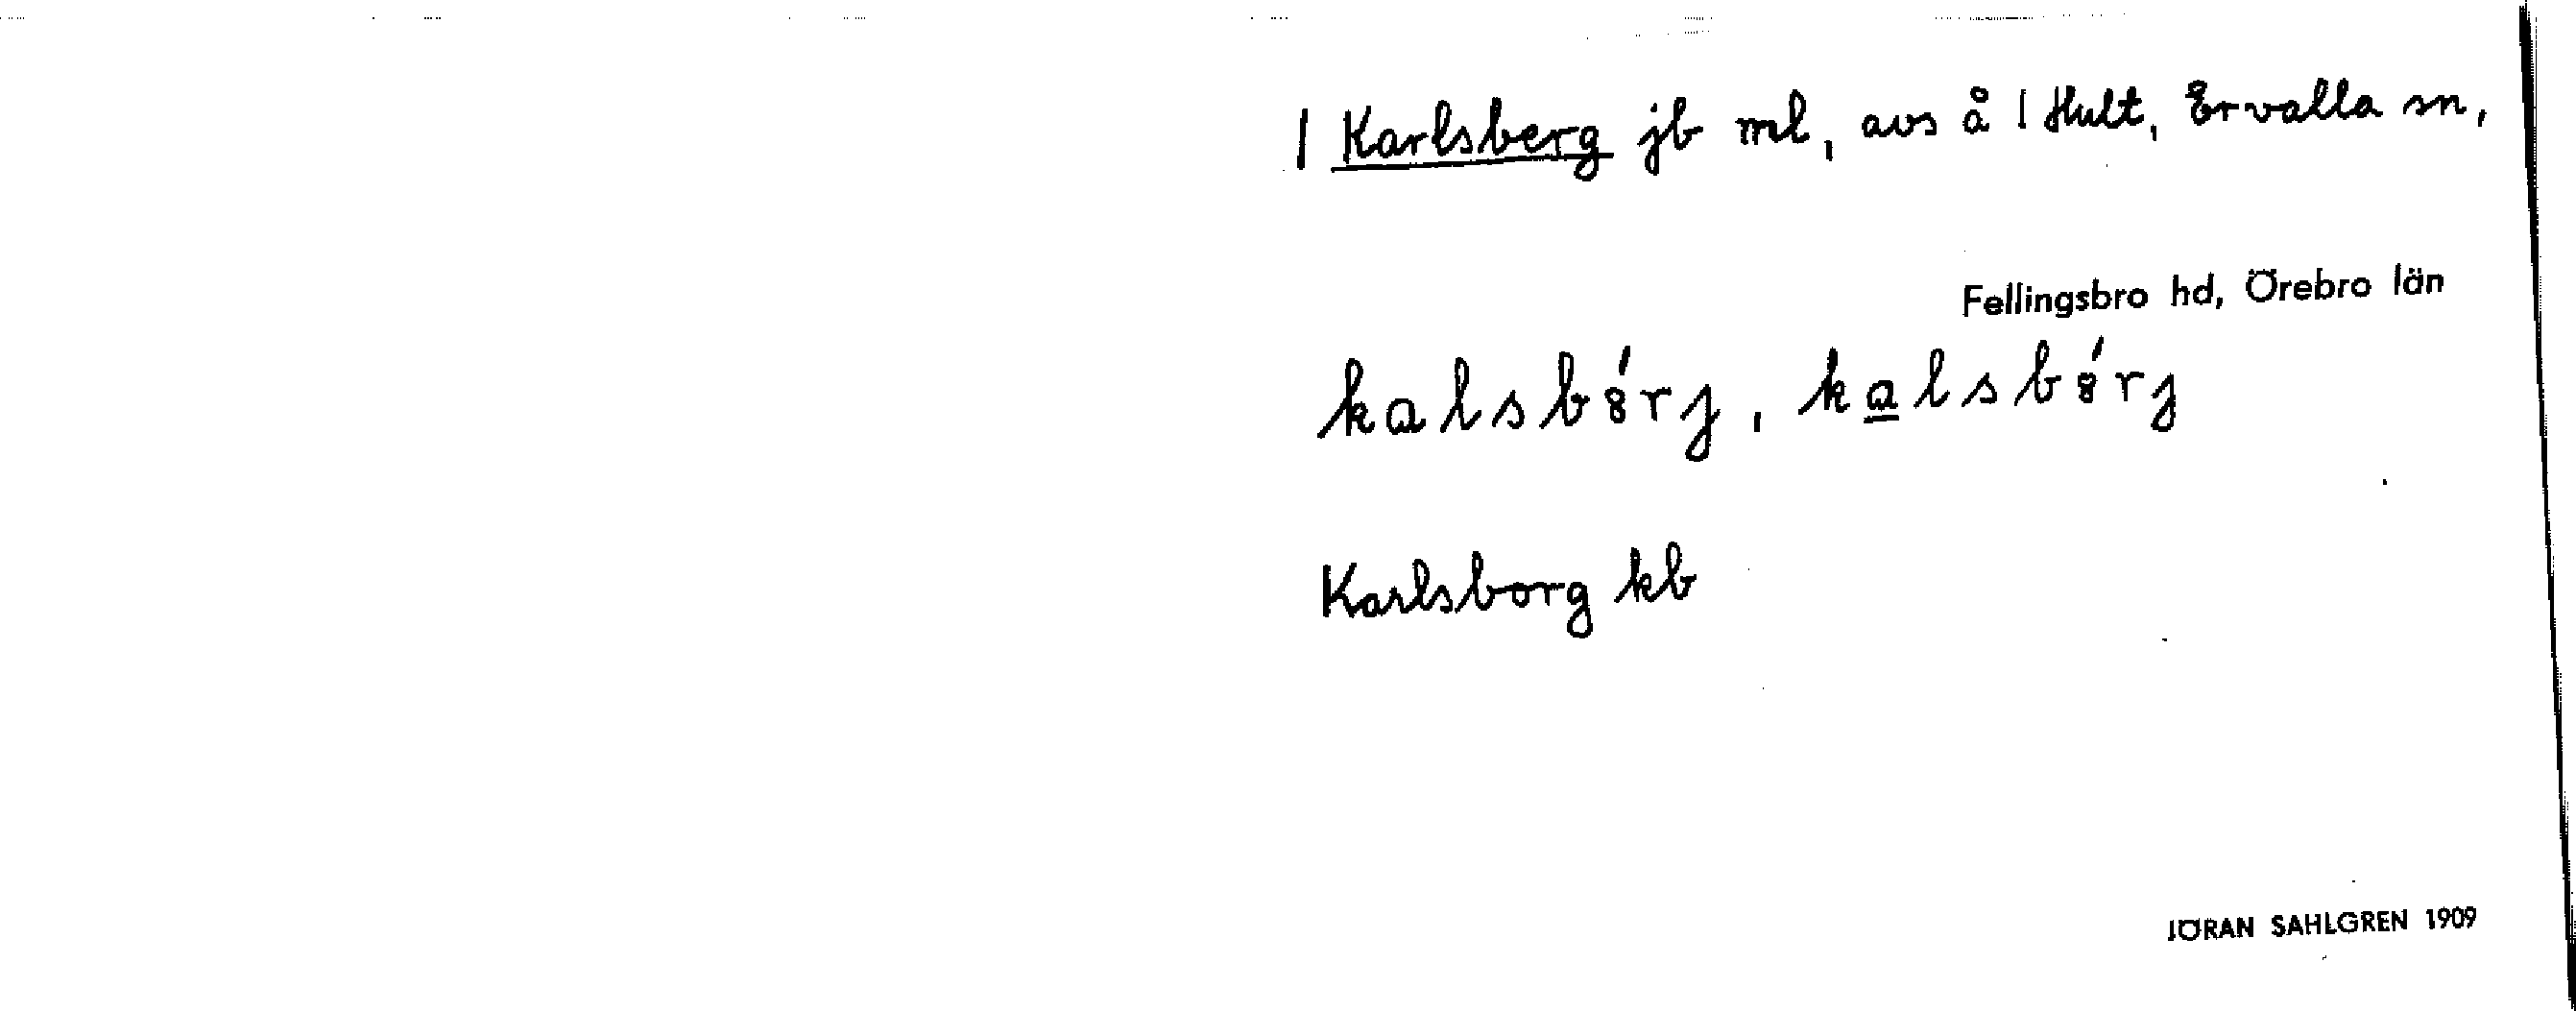 | Karlsberg jb ml, avs å | Hult, Ervalla sn,
Fellingsbro hd, Örebro län
kalsbȣ́rj, ka̲lsbȣ́rj
Karlsborg kb
JÖRAN SAHLGREN 1909